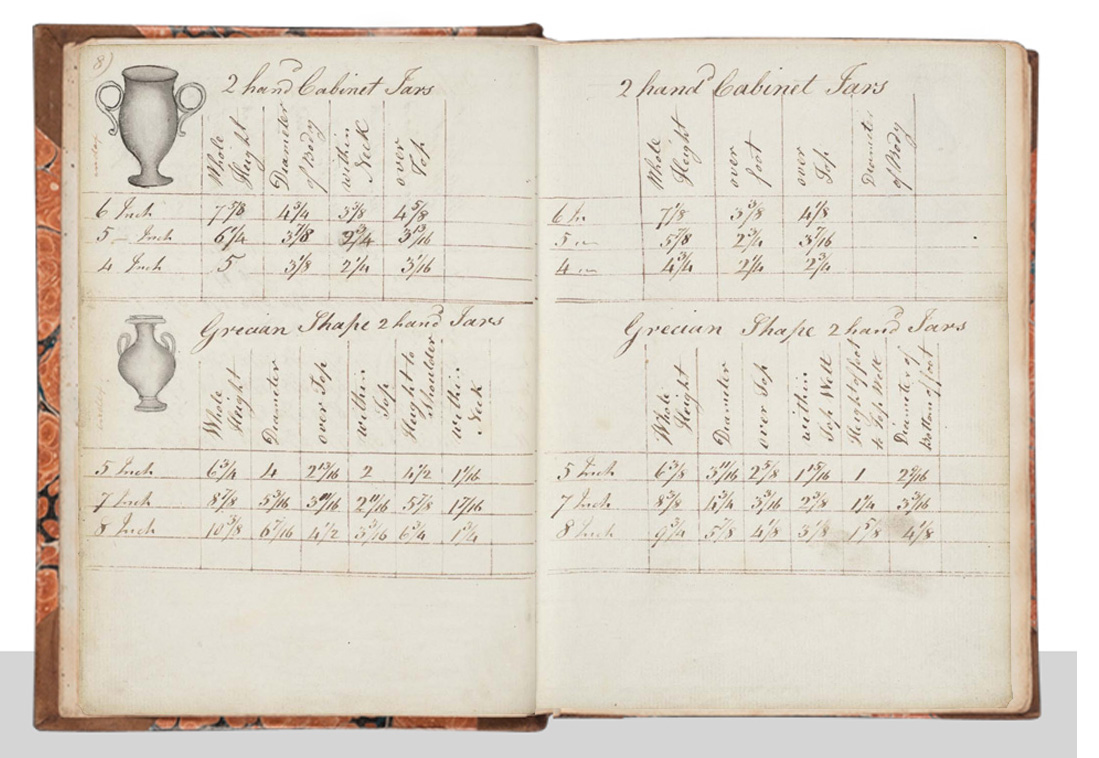 8)
2 hand Cabinet Jars
Whole Height
Diameter of Body
within Neck
over Top
6 Inch 7 5/8 4 3/4 3 3/8 4 5/8
5 Inch 6 1/4 3 7/8 2 3/4 3 13/16
4 Inch 5 3 1/8 2 1/4 3 1/16
Grecian Shape 2 hand Jars
Whole Height
Diameter
over Top
within Top
Height to Shoulder
within Neck
5 Inch 6 3/4 4 2 13/16 2 4 1/2 1 1/16
7 Inch 8 7/8 5 3/16 3 11/16 2 11/16 5 7/8
8 Inch 10 3/8 6 7/16 4 1/2 3 3/16 6 3/4 1 3/4
2 hand Cabinet Jars
Whole Height
over foot
over Top
Diameter of Body
6 In 7 1/8 3 3/8 4 1/8
5 5 7/8 2 3/4 3 7/16
4 4 3/4 2 1/4 2 3/4
Grecian Shape 2 hand Jars
Whole Height
Diameter
over Top
within Top Well
Height of foot to Top Well
Diameter of bottom of foot
5 Inch 6 3/8 3 11/16 2 5/8 1 15/16 1 2 9/16
7 Inch 8 3/8 4 3/4 3 3/16 2 3/8 1 1/4 3 3/16
8 Inch 9 3/4 5 7/8 4 1/8 3 1/8 4 1/8